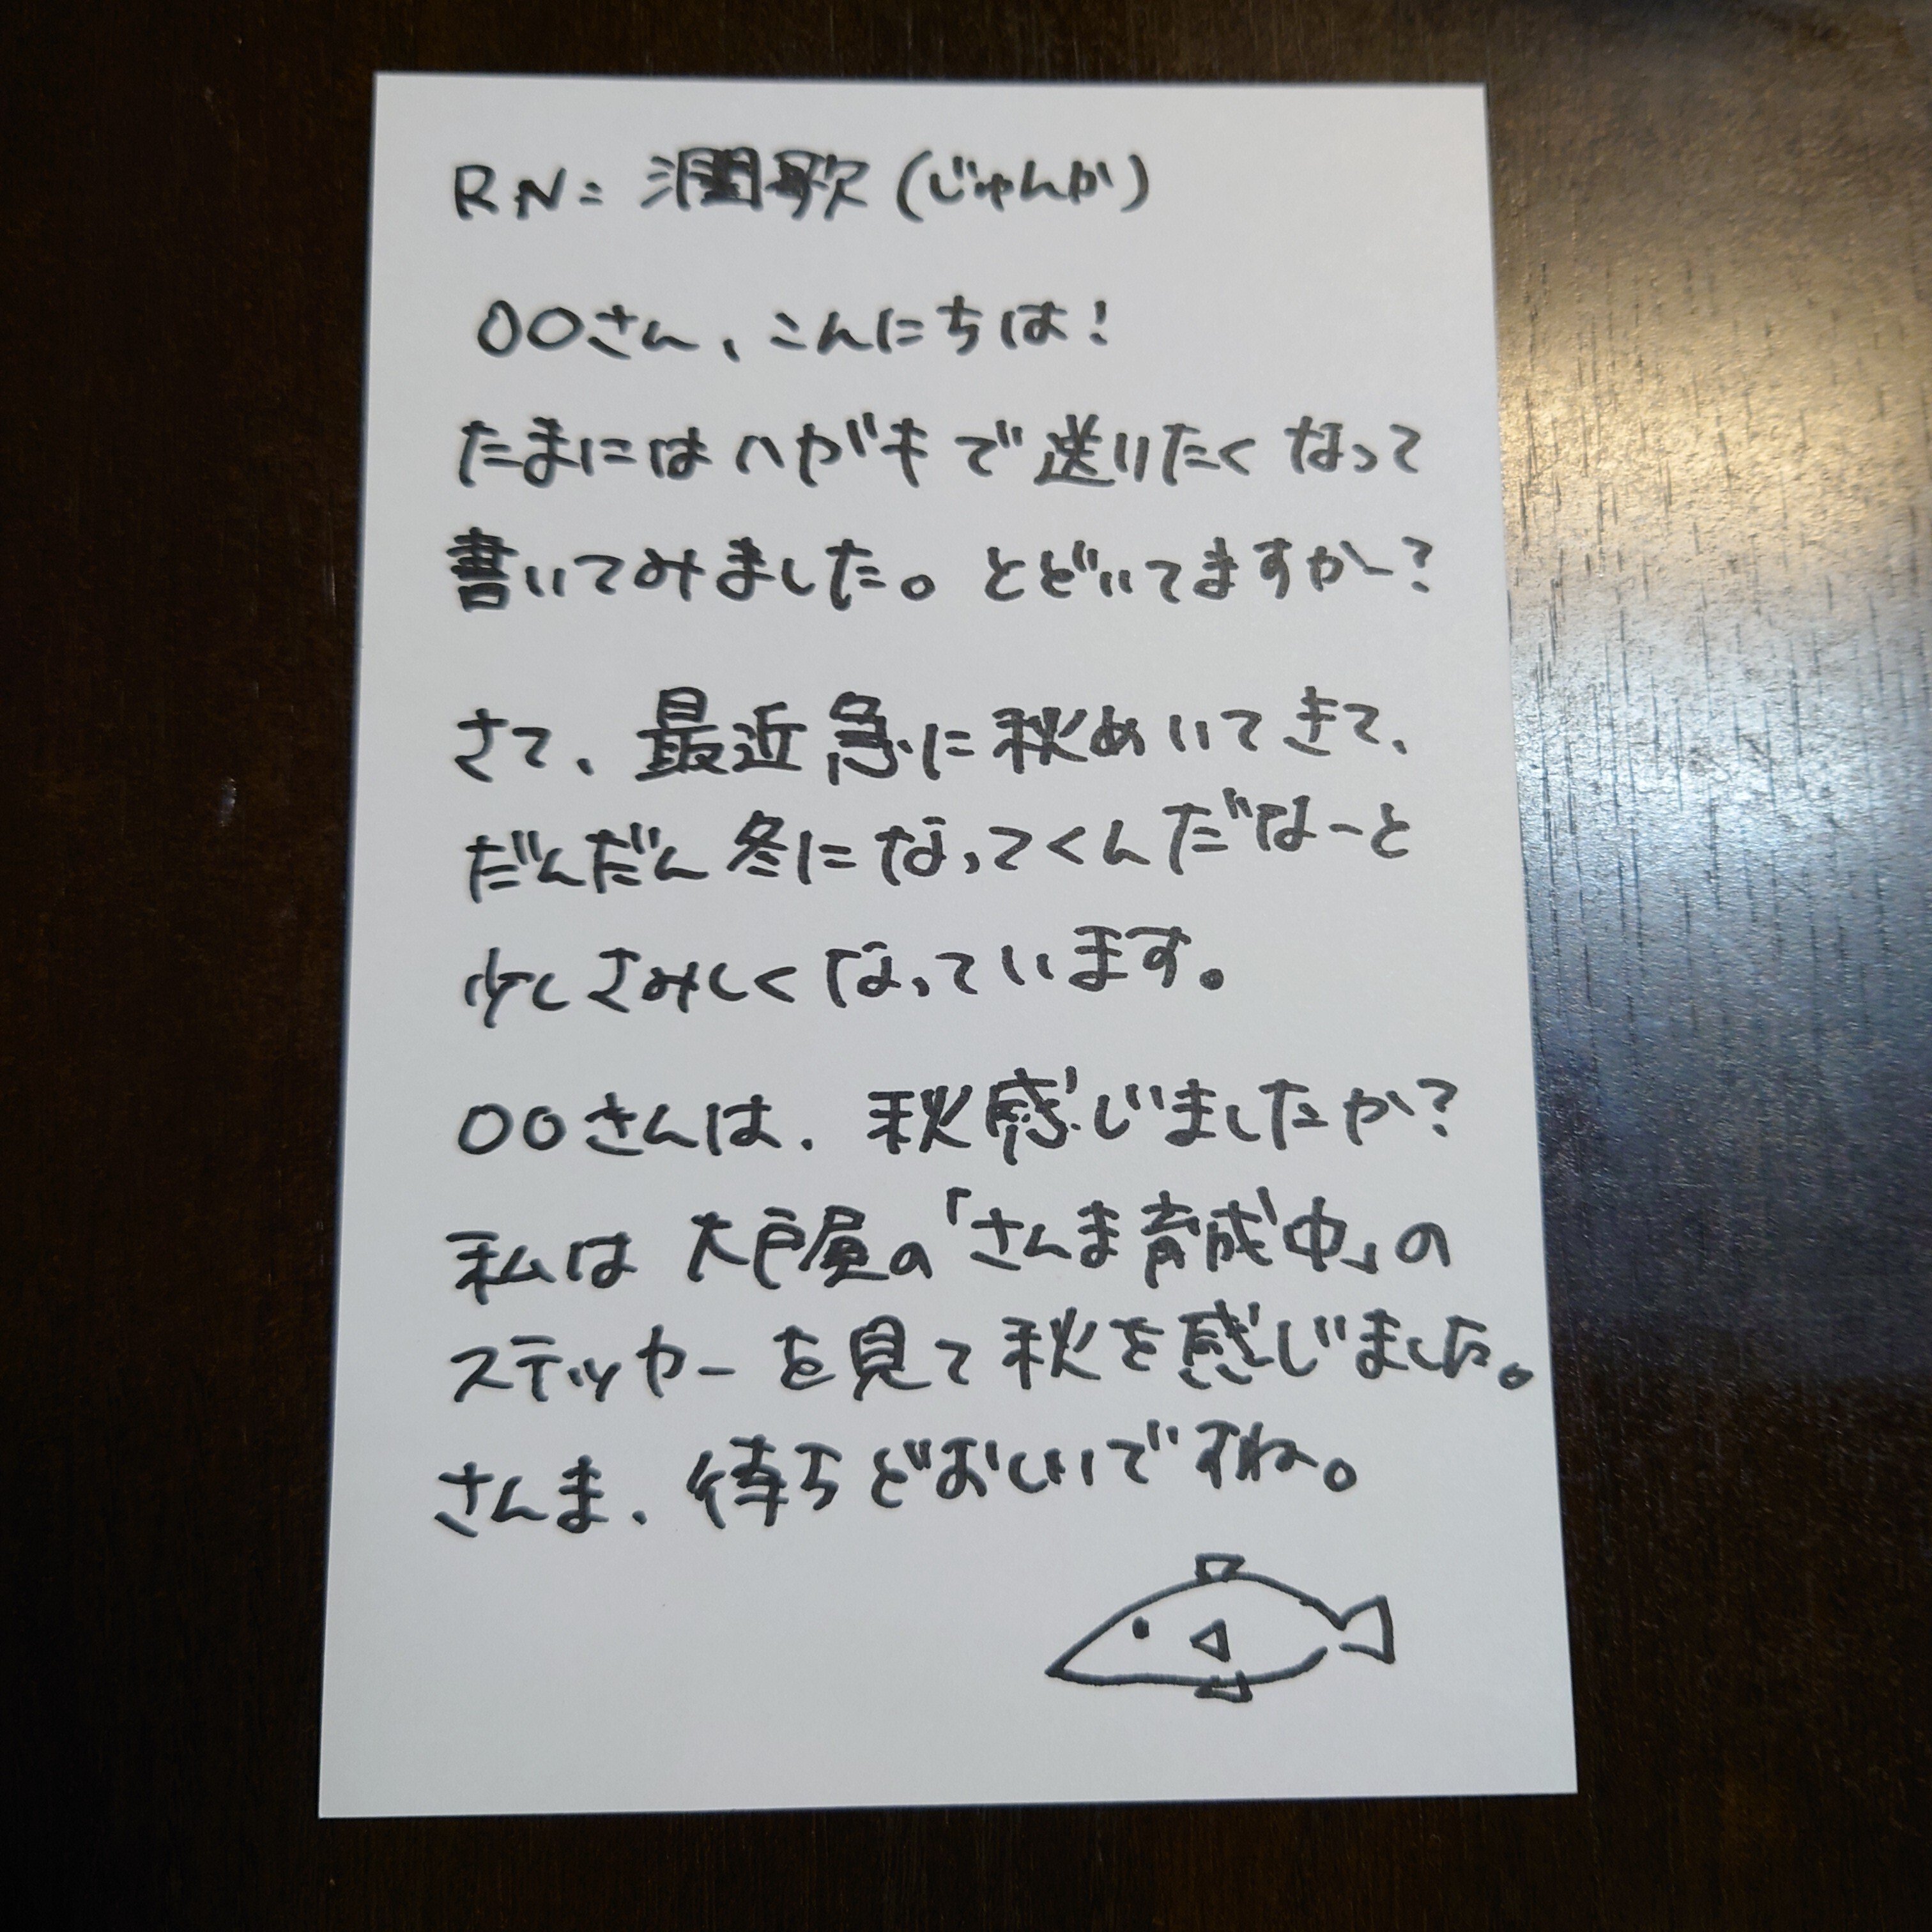 RN:潤歌(じゅんか)
〇〇さん、こんにちは!
たまにはハガキで送りたくなって
書いてみました。とどいてますかー?
さて、最近急に秋めいてきて、
だんだん冬になってくんだなーと
少しさみしくなっています。
〇〇さんは、秋感じましたか?
私は大戸屋の「さんま育成中」の
ステッカーを見て秋を感じました。
さんま、待ちどおしいですね。